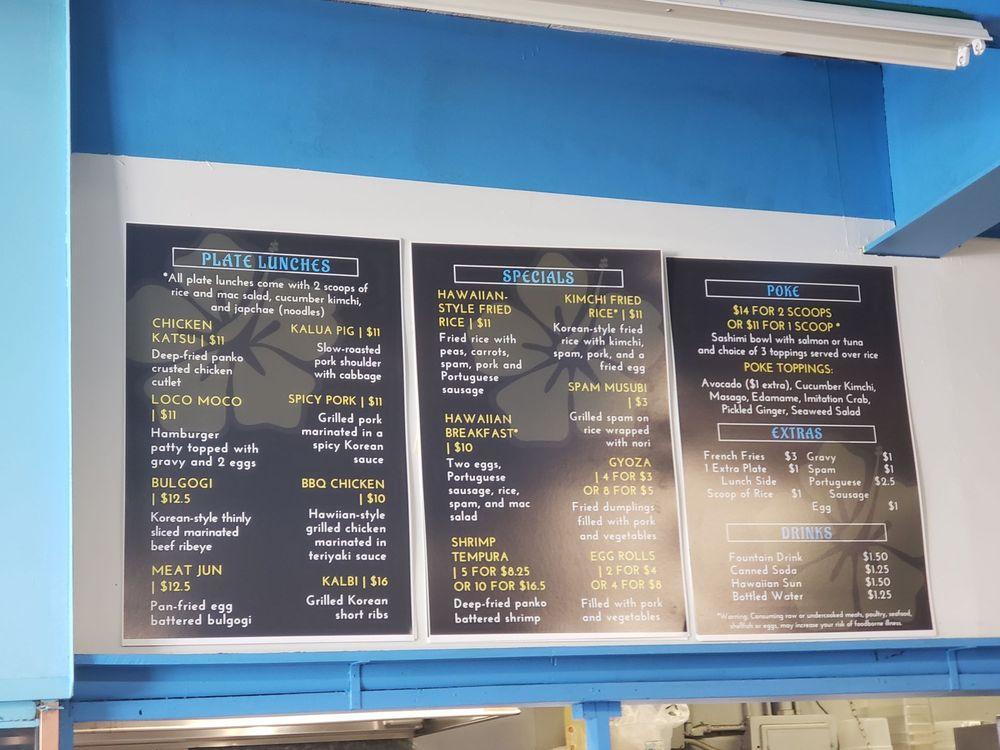 PLATE LUNCHES
*All plate lunches come with 2 scoops of
rice and mac salad, cucumber kimchi,
and japchae (noodles)
CHICKEN
KATSU | $11
Deep-fried panko
crusted chicken
cutlet
LOCO MOCO
| $11
Hamburger
patty topped with
gravy and 2 eggs
BULGOGI
| $12.5
Korean-style thinly
sliced marinated
beef ribeye
MEAT JUN
| $12.5
Pan-fried egg
battered bulgogi
KALUA PIG | $11
Slow-roasted
pork shoulder
with cabbage
SPICY PORK | $11
Grilled pork
marinated in a
spicy Korean
sauce
BBQ CHICKEN
| $10
Hawiian-style
grilled chicken
marinated in
teriyaki sauce
KALBI | $16
Grilled Korean
short ribs
SPECIALS
HAWAIIAN-
STYLE FRIED
RICE | $11
Fried rice with
peas, carrots,
spam, pork and
Portuguese
sausage
HAWAIIAN
BREAKFAST*
| $10
Two eggs,
Portuguese
sausage, rice,
spam, and mac
salad
SHRIMP
TEMPURA
| 5 FOR $8.25
OR 10 FOR $16.5
Deep-fried panko
battered shrimp
KIMCHI FRIED
RICE* | $11
Korean-style fried
rice with kimchi,
spam, pork, and a
fried egg
SPAM MUSUBI
| $3
Grilled spam on
rice wrapped
with nori
GYOZA
| 4 FOR $3
OR 8 FOR $5
Fried dumplings
filled with pork
and vegetables
EGG ROLLS
| 2 FOR $4
OR 4 FOR $8
Filled with pork
and vegetables
POKE
$14 FOR 2 SCOOPS
OR $11 FOR 1 SCOOP *
Sashimi bowl with salmon or tuna
and choice of 3 toppings served over rice
POKE TOPPINGS:
Avocado ($1 extra), Cucumber Kimchi,
Masago, Edamame, Imitation Crab,
Pickled Ginger, Seaweed Salad
EXTRAS
French Fries $3
1 Extra Plate $1
Lunch Side
Scoop of Rice $1
Gravy $1
Spam $1
Portuguese $2.5
Sausage
Egg $1
DRINKS
Fountain Drink $1.50
Canned Soda $1.25
Hawaiian Sun $1.50
Bottled Water $1.25
*Warning: Consuming raw or undercooked meats, poultry, seafood,
shellfish or eggs, may increase your risk of foodborne illness.